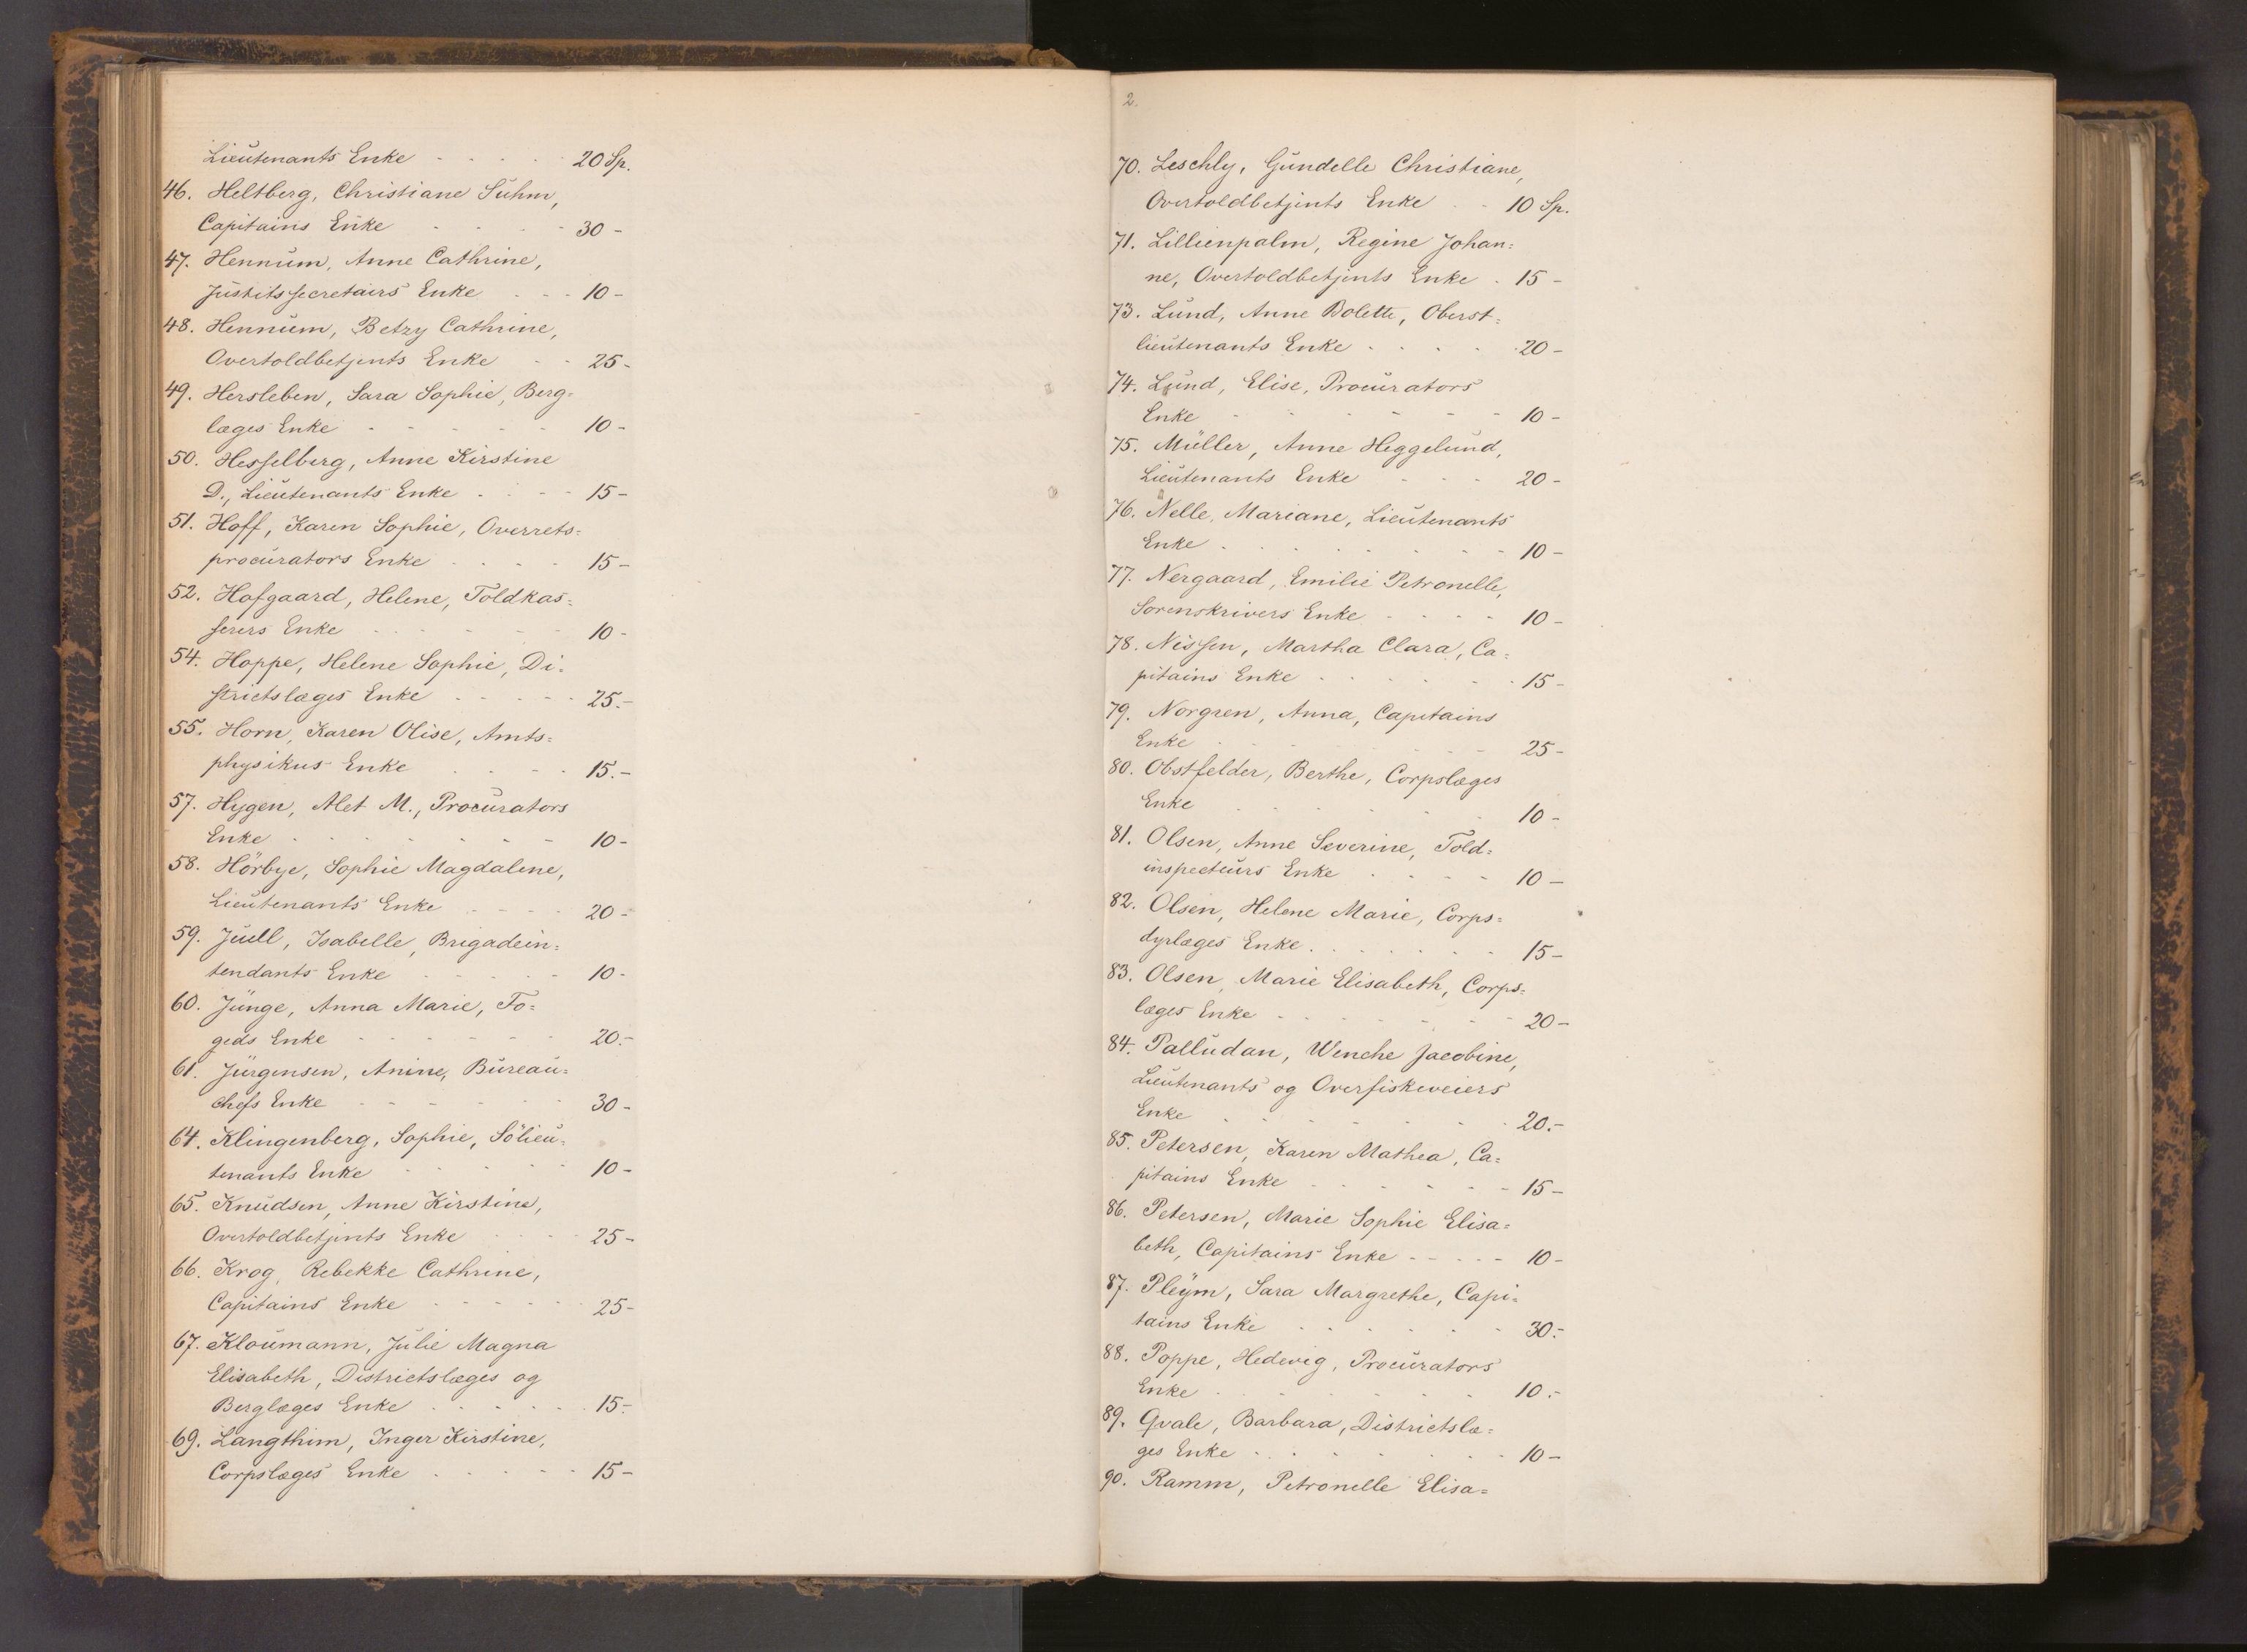 Lieutenants Enke - - - - - 20 Sp.
46. Heltberg, Christiane Suhm,
Capitains Enke - - - - 30 -
47. Hennum, Anne Cathrine,
Justitssecretairs Enke - - - 10 -
48. Hennum, Betzy Cathrine,
Overtoldbetjents Enke - - 25 -
49. Hersleben, Sara Sophie, Berg=
læges Enke - - - - - 10 -
50. Hesselberg, Anne Kirstine
D., Lieutenants Enke - - - - 15 -
51. Hoff, Karen Sophie, Overrets=
procurators Enke - - - - 15 -
52. Hofgaard, Helene, Toldkas=
serers Enke - - - - - - 10 -
54. Hoppe, Helene Sophie, Di=
strictslæges Enke - - - - - 25.-
55. Horn, Karen Olise, Amts=
physikus Enke - - - - 15.-
57. Hygen, Alet M., Procurators
Enke - - - - - - - 10 -
58. Hörbye, Sophie Magdalene,
Lieutenants Enke - - - - 20 -
59. Juell, Isabelle, Brigadein=
tendants Enke - - - - - 10 -
60. Junge, Anna Marie, Fo=
geds Enke - - - - - - 20.-
61. Jürgensen, Anine, Bureau=
chefs Enke - - - - - - 30 -
64. Klingenberg, Sophie, Sölieu=
tenants Enke - - - - - 10 -
65. Knudsen, Anne Kirstine,
Overtoldbetjents Enke - - - 25 -
66. Krog, Rebekke Cathrine,
Capitains Enke - - - - - 25 -
67. Kloumann, Julie Magna
Elisabeth, Districtslæges og
Berglæges Enke - - - - - 15.-
69. Langthim, Inger Kirstine,
Corpslæges Enke - - - - - 15 -
2.
70. Leschly, Gundelle Christiane,
Overtoldbetjents Enke - - 10 Sp.
71. Lillienpalm, Regine Johan=
ne, Overtoldbetjents Enke . 15 -
73. Lund, Anne Bolette, Oberst=
lieutenants Enke - - - - 20 -
74. Lund, Elise, Procurators
Enke - - - - - - - 10 -
75. Müller, Anne Heggelund,
Lieutenants Enke - - - 20 -
76. Nelle, Mariane, Lieutenants
Enke - - - - - - - 10 -
77. Nergaard, Emilie Petronelle,
Sorenskrivers Enke - - - - 10 -
78. Nissen, Martha Clara, Ca=
pitains Enke - - - - - - 15 -
79. Norgren, Anna, Capitains
Enke - - - - - - - 25 -
80. Obstfelder, Berthe, Corpslæges
Enke - - - - - - - 10 -
81. Olsen, Anne Severine, Told=
inspecteurs Enke - - - - 10 -
82. Olsen, Helene Marie, Corps=
dyrlæges Enke - - - - - - 15 -
83. Olsen, Marie Elisabeth, Corps=
læges Enke - - - - - - - 20 -
84. Palludan, Wenche Jacobine,
Lieutenants og Overfiskeveiers
Enke - - - - - - - 20.-
85. Petersen, Karen Mathea, Ca=
pitains Enke - - - - - - 15 -
86. Petersen, Marie Sophie Elisa=
beth, Capitains Enke - - - - - 10 -
87. Pleÿm, Sara Margrethe, Capi=
tains Enke - - - - - - 30.-
88. Poppe, Hedevig, Procurators
Enke - - - - - - - 10.-
89. Qvale, Barbara, Districtslæ=
ges Enke - - - - - - - 10 -
90. Ramm, Petronelle Elisa=